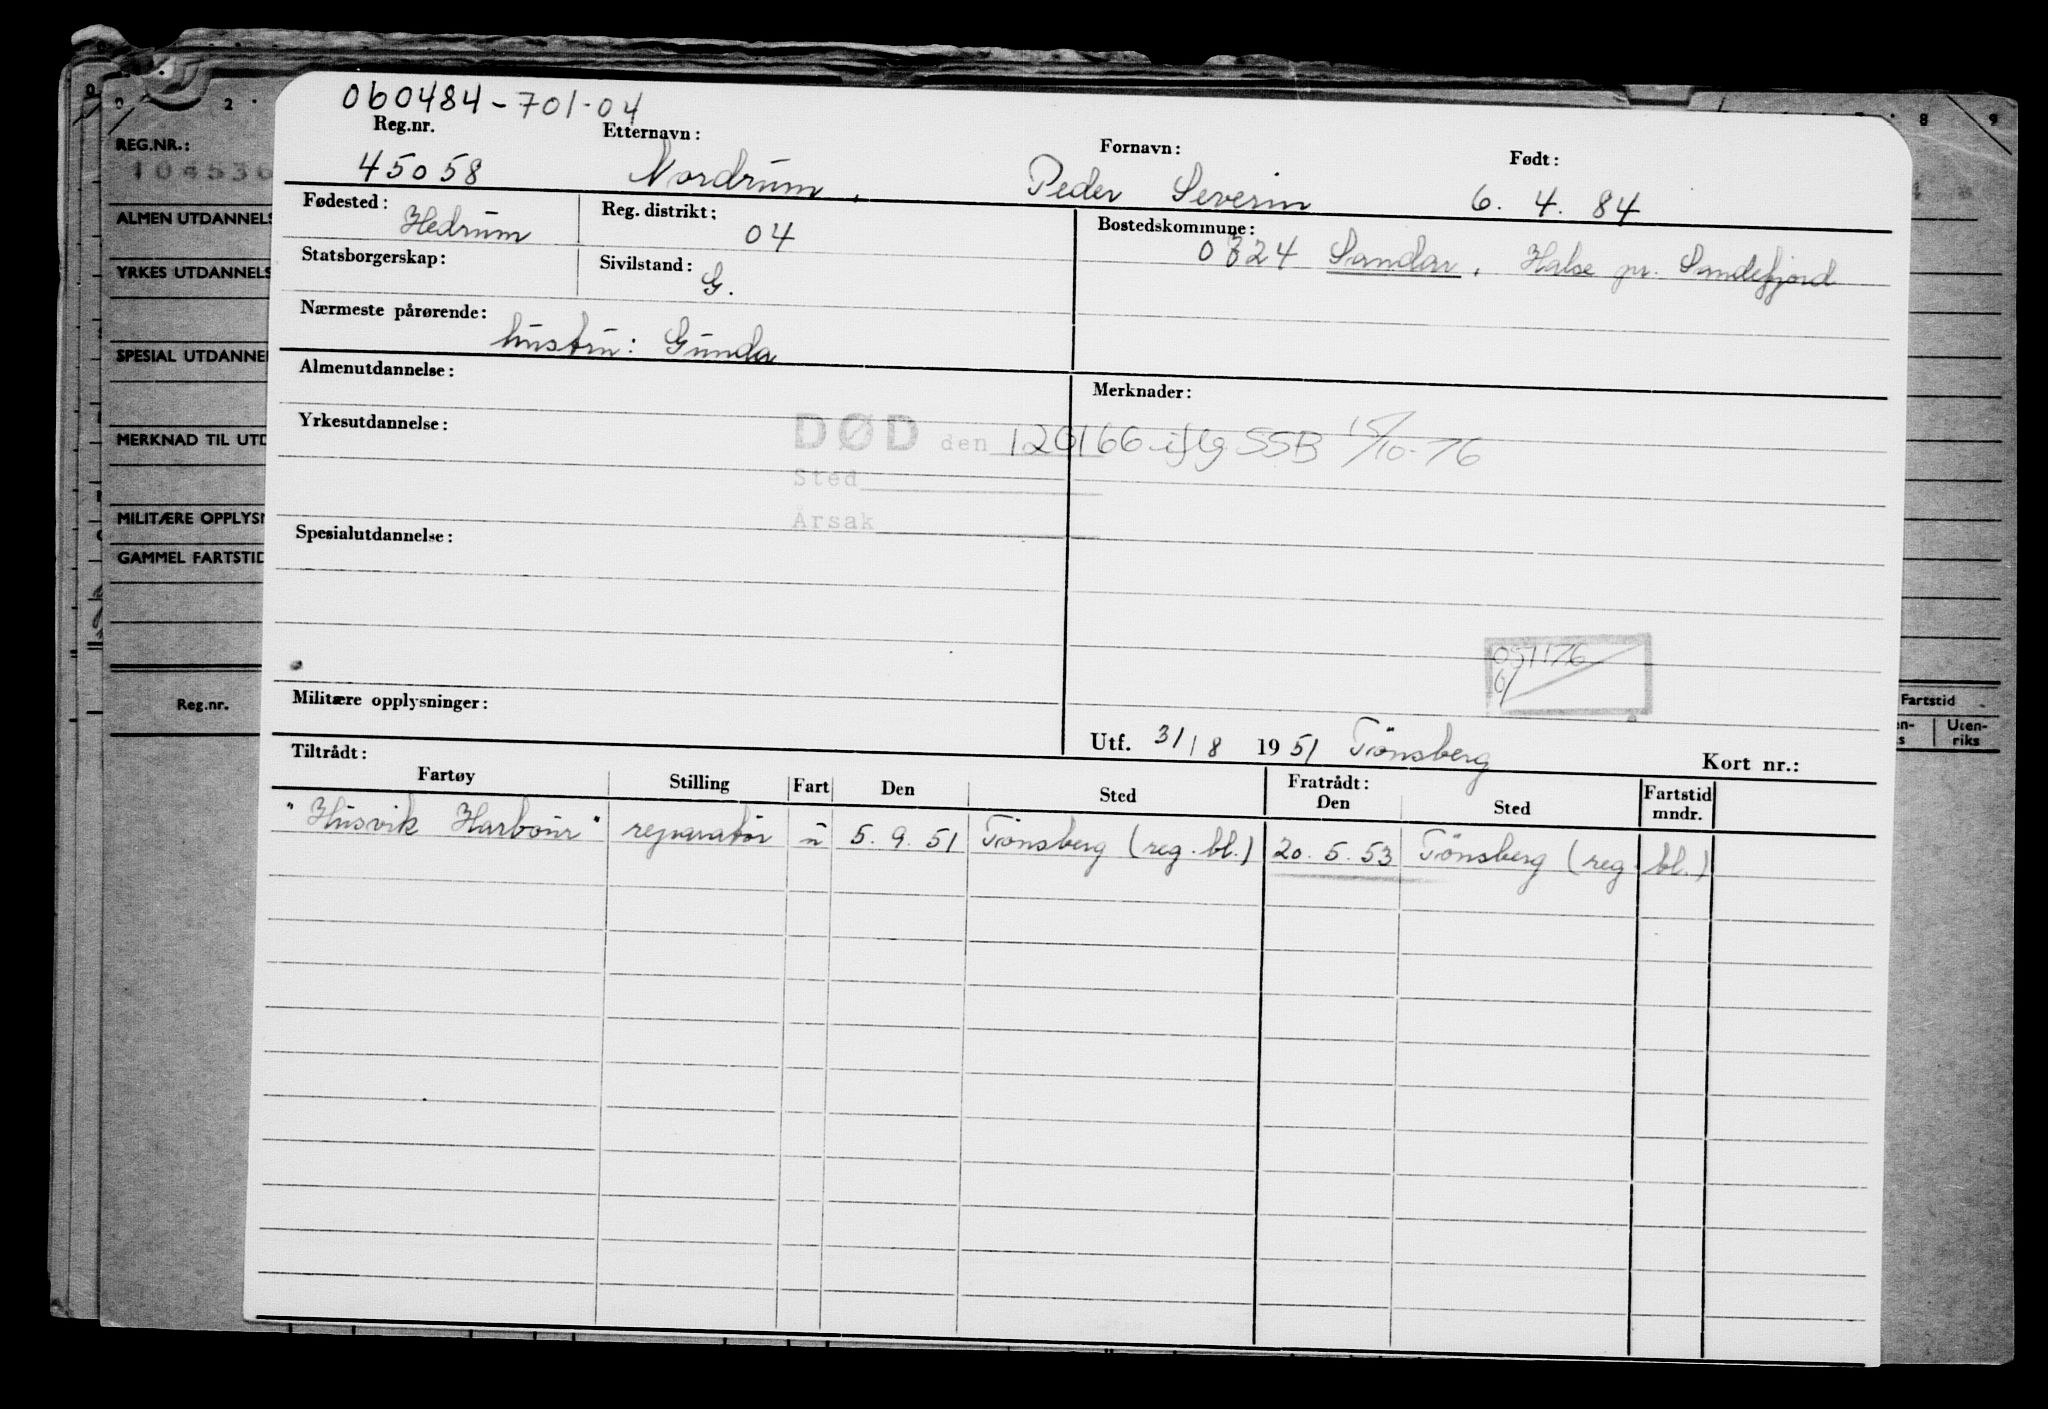 060484-701-04
Reg.nr. Etternavn: Fornavn: Født:
45058 Nordrum, Peder Severin 6. 4. 84
Fødested: Hedrum Reg. distrikt: 04 Bostedskommune:
0724 Sandar, Halse pr. Sandefjord
Statsborgerskap: Sivilstand: G.
Nærmeste pårørende:
hustru: Gunda
Almenutdannelse: Merknader:
Yrkesutdannelse:
DØD den 120166 iflg SSB 15/10-76
Sted
Årsak
Spesialutdannelse:
051176
Militære opplysninger:
Utf. 31/8 1951 Tönsberg Kort nr.:
Tiltrådt: Fratrådt:
Fartøy Stilling Fart Den Sted Den Sted Fartstid mndr.
"Husvik Harbour" reparatör u 5. 9. 51 Tönsberg (reg. bl.) 20. 5. 53 Tönsberg (reg. bl.)
REG.NR.:
104536
ALMEN UTDANNELS
YRKES UTDANNELS
SPESIAL UTDANNE
MERKNAD TIL UTD
MILITÆRE OPPLYS
GAMMEL FARTSTID
Reg.nr.
Fartstid
Uten-
riks
2
8 9